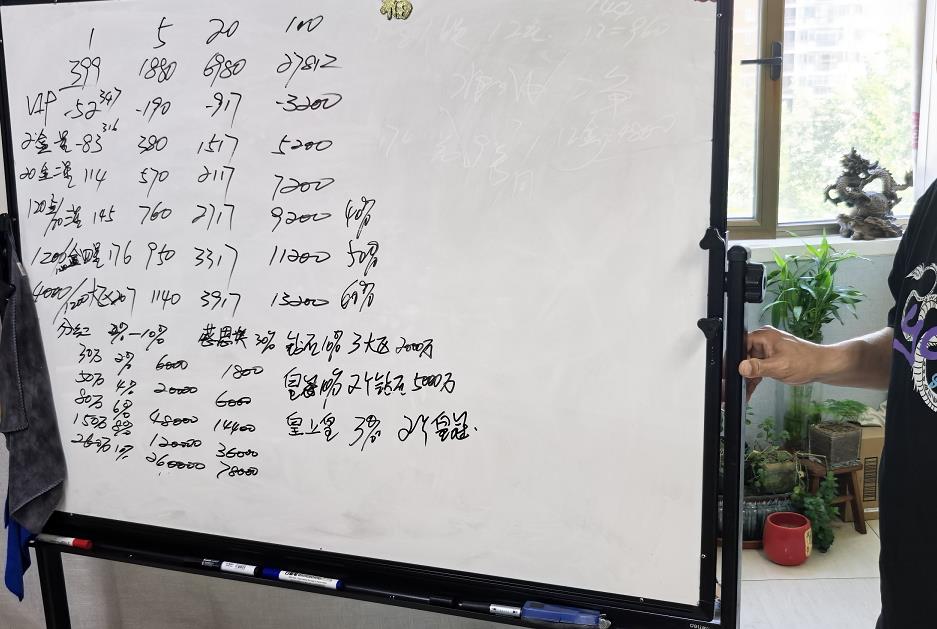 1 5 20 100
399 1880 6980 27812
VIP -52 347 -190 -917 -3200
2金一星 -83 316 380 1517 5200
20金二星 114 570 2117 7200
120 三星 145 760 2717 9200 40%
1200 四星 176 950 3317 11200 50%
4000/1200 大 207 1140 3917 13200 60%
分红 2%-10% 感恩奖 30% 钻石10% 3大 2000万
30万 2% 6000 1800
50万 4% 20000 6000 皇冠10% 2个钻石 5000万
80万 6% 48000 14400 皇上皇 3% 2个皇冠.
150万 8% 120000 36000
260万 10% 260000 78000